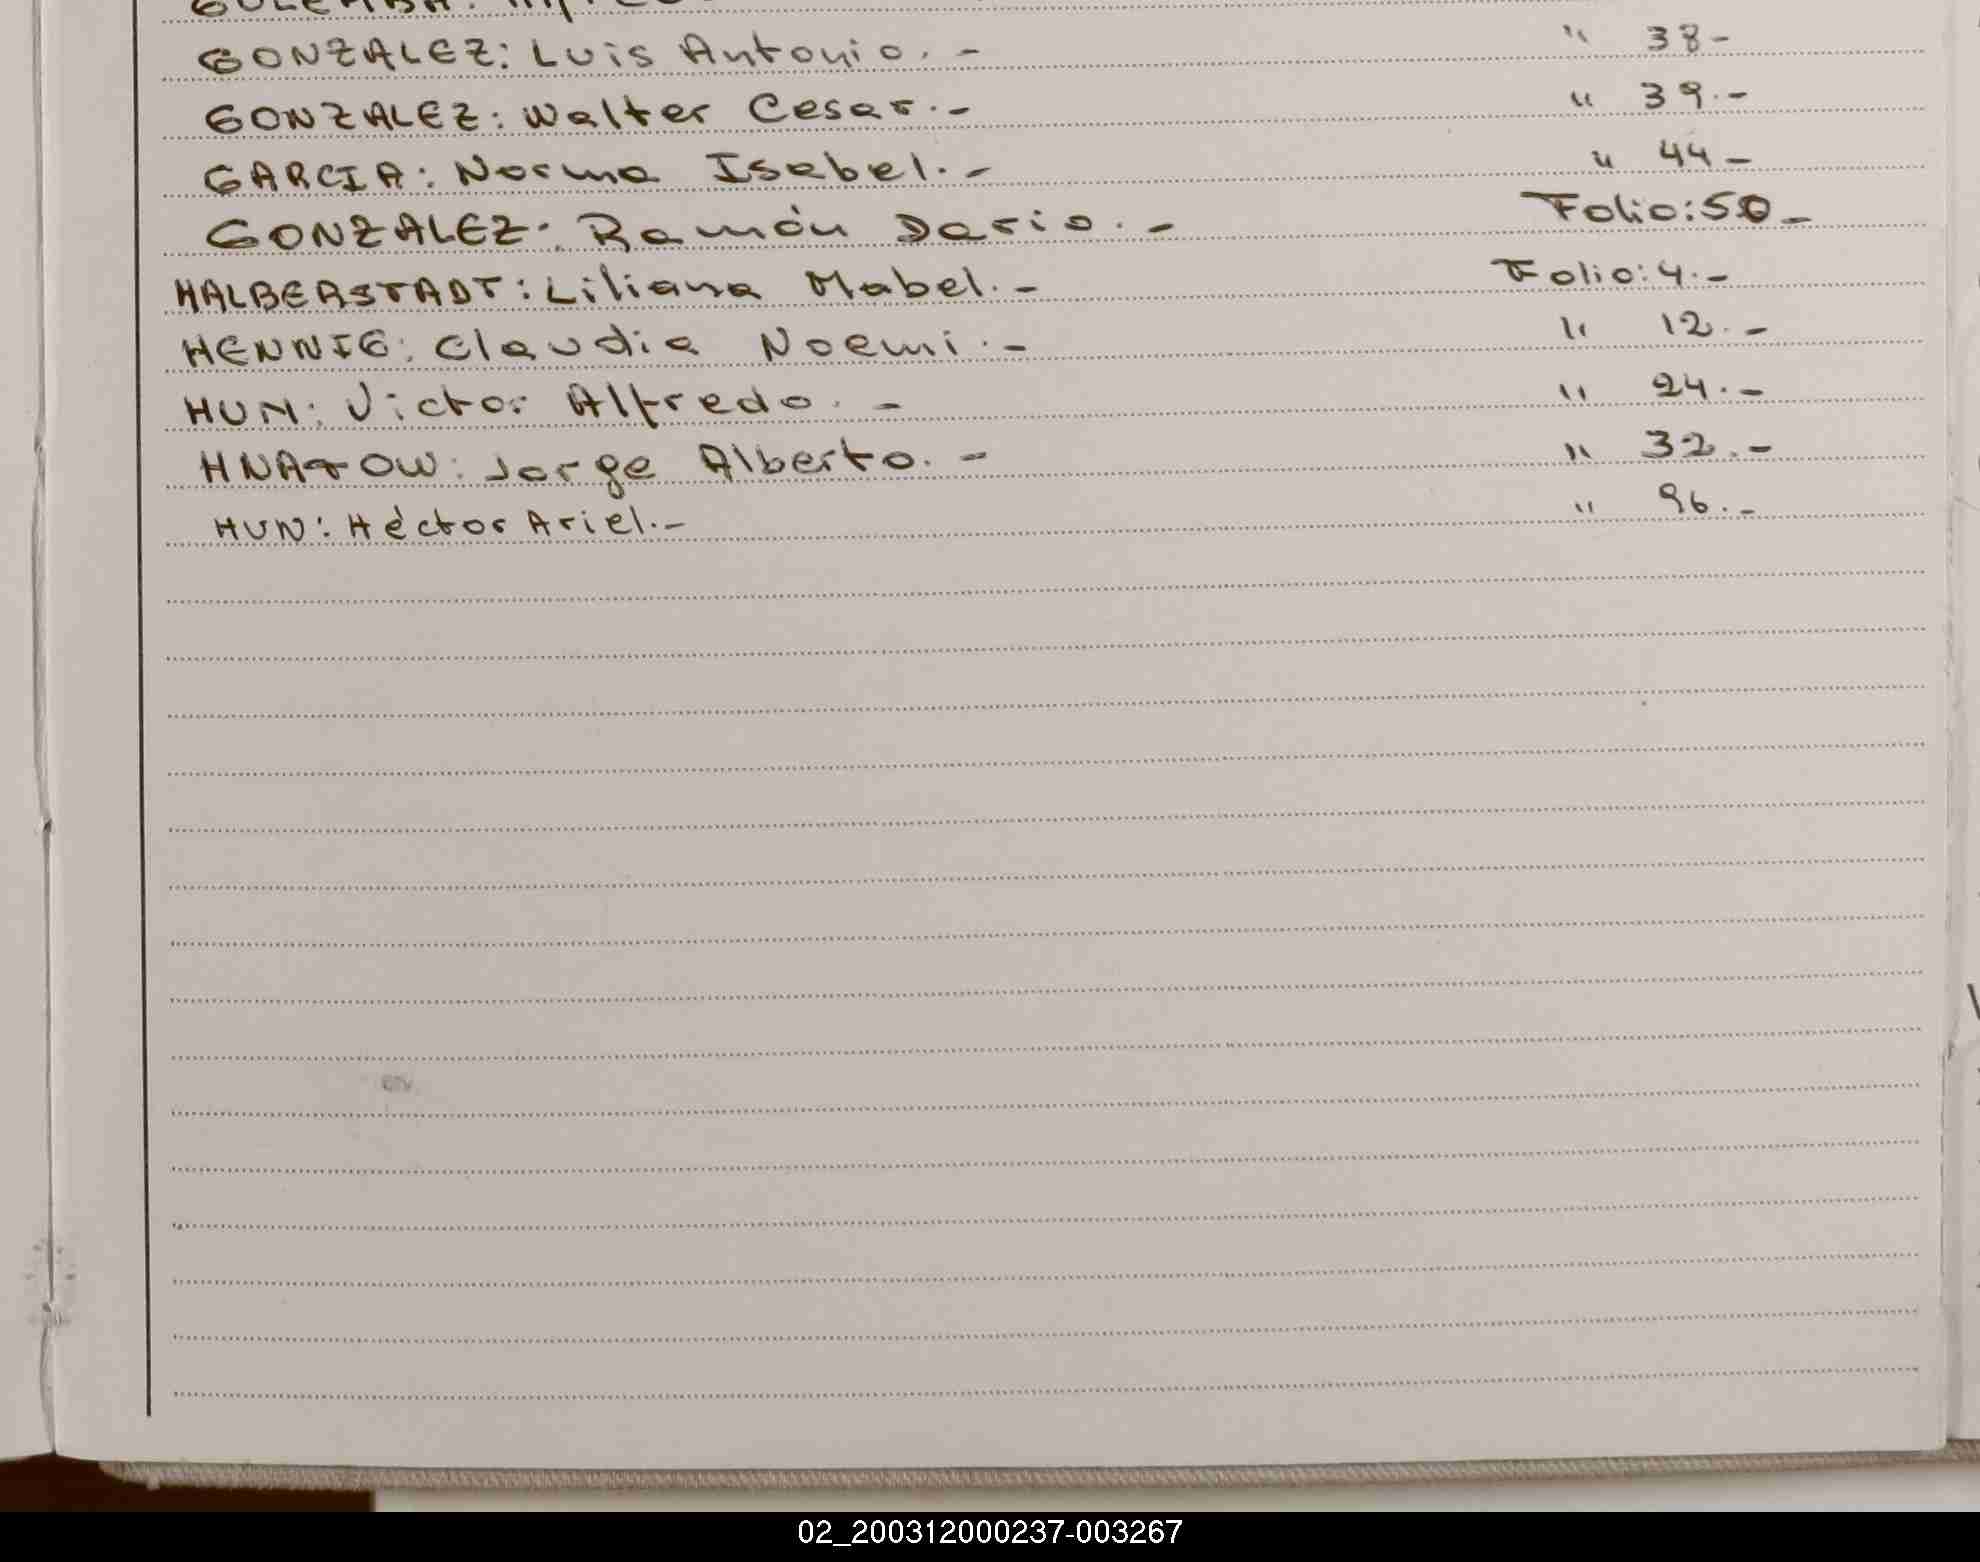 GONZALEZ: Luis Antonio. - " 38-
GONZALEZ: Walter Cesar.- " 39.-
GARCIA: Norma Isabel.- " 44-
GONZALEZ: Ramón Dario.- Folio:50-
HALBERSTADT: Liliana Mabel.- Folio:4.-
HENNIG: Claudia Noemi.- " 12.-
HUN: Victor Alfredo.- " 24.-
HNATOW: Jorge Alberto.- " 32.-
HUN: Héctor Ariel.- " 96.-
02_200312000237-003267